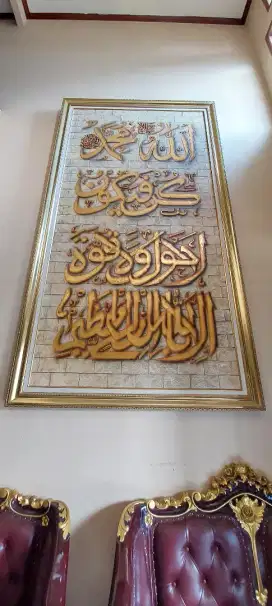 الله محمد
كن فيكون
لا حول ولا قوة
الا بالله العلي العظيم